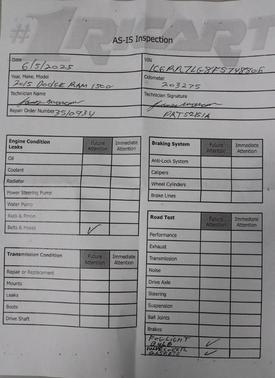 #1
AS-IS Inspection
Date
6/5/2025
VIN
Year, Make, Model
2015 DODGE RAM 1500
Odometer
203275
Technician Name
Technician Signature
Repair Order Number 35/0934
Engine Condition
Leaks
Future Attention
Immediate Attention
Oil
Coolant
Radiator
Power Steering Pump
Water Pump
Rack & Pinion
Belts & Hoses ✓
Transmission Condition
Future Attention
Immediate Attention
Repair or Replacement
Mounts
Leaks
Boots
Drive Shaft
Braking System
Future Attention
Immediate Attention
Anti-Lock System
Calipers
Wheel Cylinders
Brake Lines
Road Test
Future Attention
Immediate Attention
Performance
Exhaust
Transmission
Noise
Drive Axle
Steering
Suspension
Ball Joints
Brakes
FOGLIGHT ✓
BULB
✓